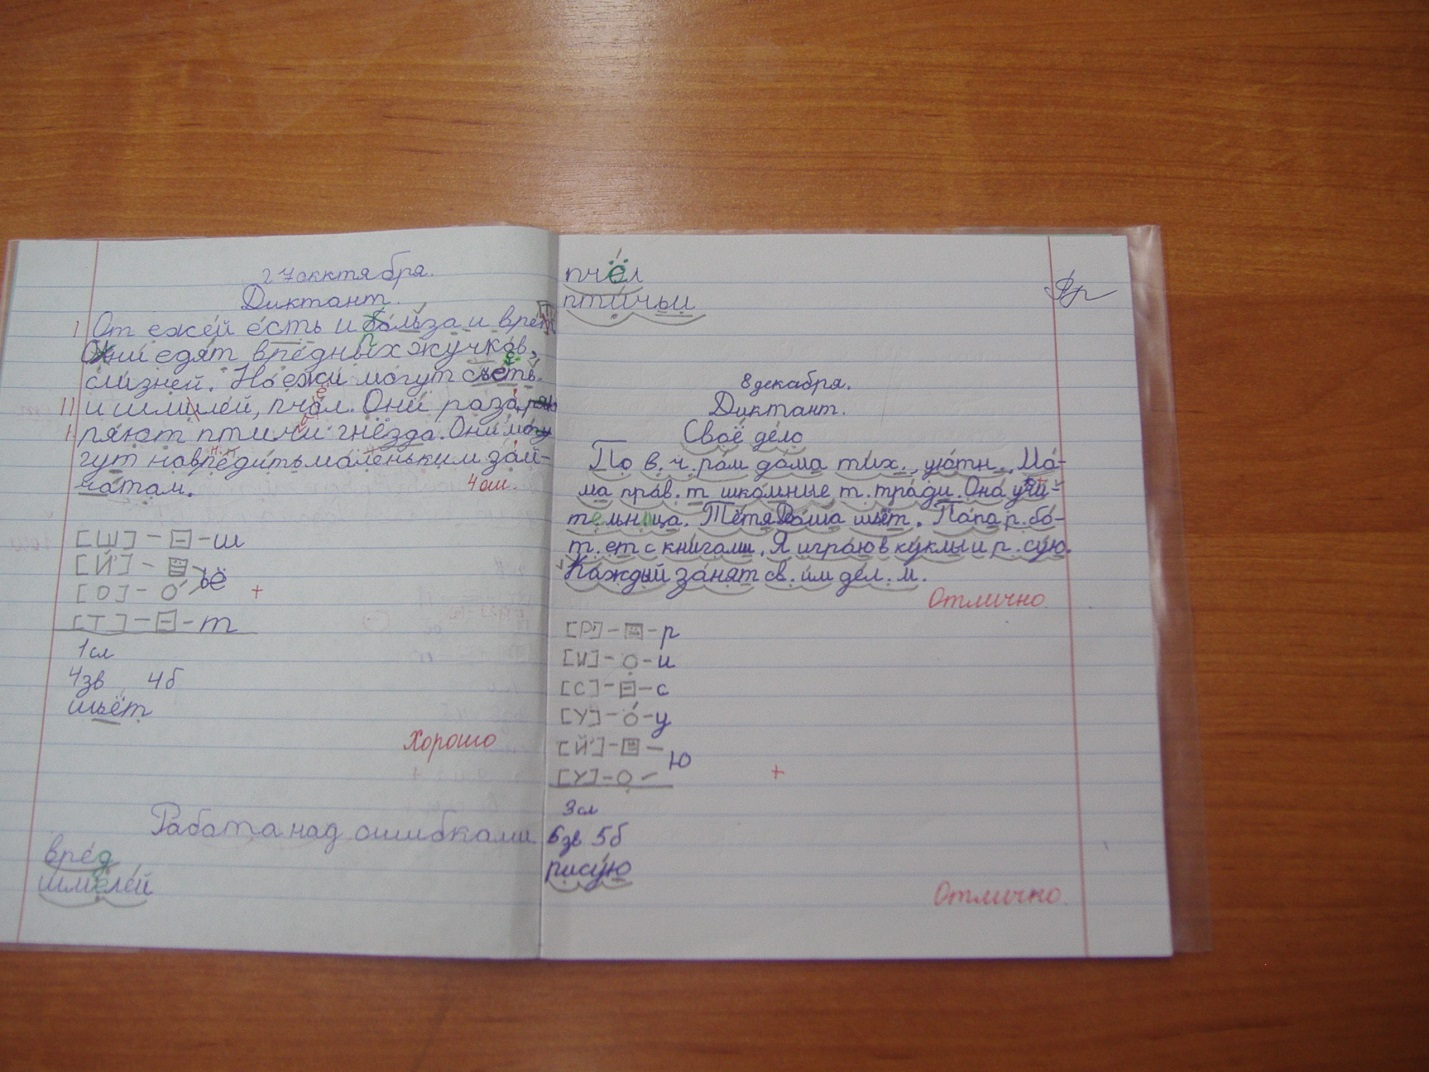 27 октября.
Диктант.
От ежей есть и польза и вред
Они едят вредных жучков,
слизней. Но ежи могут съесть
и шмилей, пчол. Они разаря
ряют птичи гнёзда. Они могу
гут навредить маленьким зай-
чатам.
4 ош.
[Ш] - - ш
[Й'] -
[О] - ьё
+
[Т] - - т
1 сл
4 зв 4 б
шьёт
Хорошо
Работа над ошибками.
вред
шмелей
пчёл
птичьи
8 декабря.
Диктант.
Своё дело
По в.ч.рам дома тих., уютн.. Ма-
ма прав.т школьные т.тради. Она учи-
тельница. Тётя Даша шьёт. Папа р.бо-
т.ет с книгами. Я играю в куклы и р.сую.
Каждый занят св.им дел.м.
Отлично
[Р'] - - р
[И] - - и
[С] - - с
[У] - - у
[Й'] - -
ю
[У] - -
+
3 сл
6 зв 5 б
рисую
Отлично.